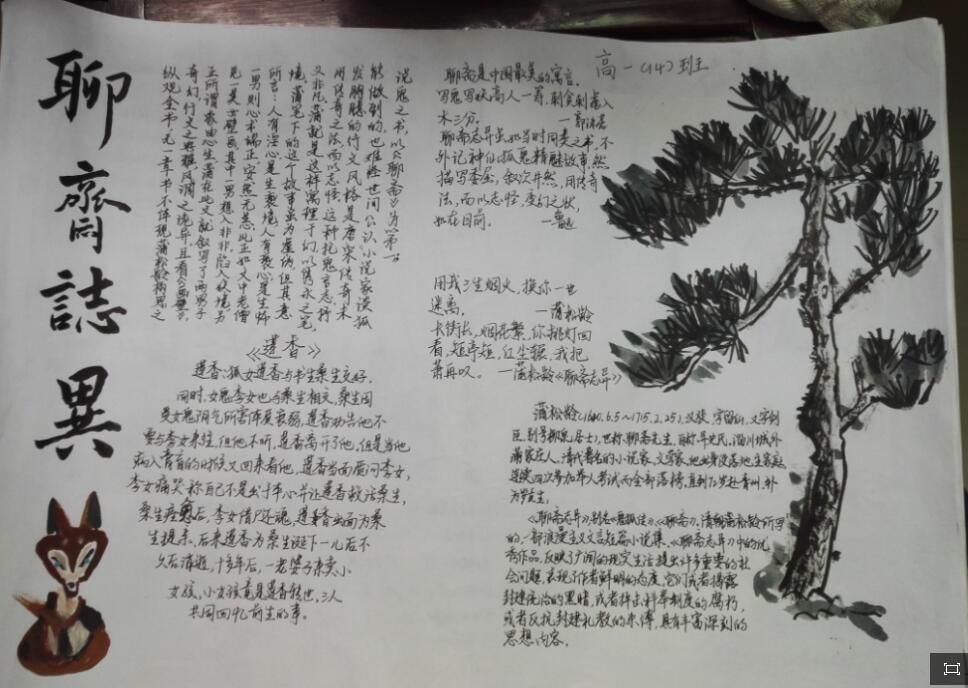 聊齋誌異
高一(14)班
说鬼之书，以《聊斋》为以第一
能做到的，也难经世间公认，小说家谈狐
发胸臆的行文风格是唐宋传奇术
用传奇之法，而以志怪，这种托鬼言志，抒
又非凡。蒲就是这样寓理于幻，以隽永之笔，
境。蒲笔下的这个故事虽为虚伪，但其意
所言：人有淫心是生亵境，人有亵心是生怖
一男则心术端正，安然无恙，此正如文中老僧
见一美女壁画，其中一男想入非非，陷入妖境，另
正所谓象由心生，蒲在此文就叙写了两男子
奇幻，行文之典雅，风澜之诡异，且看《画壁》，
纵观全书，无一章书不体现蒲松龄构思之
《莲香》
莲香：狐女莲香与书生桑生交好，
同时，女鬼李女也与桑生相交，桑生因
受女鬼阴气所害体质衰弱，莲香劝告他不
要与李女来往，但他不听，莲香离开了他，但是当他
病入膏肓的时候又回来看他，莲香当面质问李女，
李女痛哭称自己不是出于本心并让莲香救活桑生，
桑生痊愈后，李女借尸还魂，莲香出面为桑
生提亲，后来莲香为桑生诞下一儿后不
久后消逝，十多年后，一老婆子来卖小
女孩，小女孩竟是莲香转世，三人
共同回忆前生的事。
聊斋是中国最美的寓言。
写鬼写妖高人一等，刺贪刺虐入
木三分。 —郭沫若
聊斋志异虽如当时同类之书，不
外记神仙狐鬼精魅故事，然
描写委屈，叙次井然，用传奇
法，而以志怪，变幻之状，
如在目前。 —鲁迅
用我三生烟火，换你一世
迷离。 —蒲松龄
长街长，烟花繁，你挑灯回
看，短亭短，红尘辗，我把
萧再叹。 —蒲松龄《聊斋志异》
蒲松龄(1640.6.5～1715.2.25)，汉族，字留仙，又字剑
臣，别号柳泉居士，世称聊斋先生，自称异史氏，淄川城外
蒲家庄人，清代著名的小说家、文学家，他出身没落地主家庭
连续四次参加举人考试而全部落榜，直到72岁赴青州，补
为贡生。
《聊斋志异》别名《鬼狐传》、《聊斋》，清朝蒲松龄所写
的，一部浪漫主义文言短篇小说集，《聊斋志异》中的优
秀作品，反映了广阔的现实生活，提出许多重要的社
会问题，表现了作者鲜明的态度，它们或者揭露
封建统治的黑暗，或者抨击科举制度的腐朽，
或者反抗封建礼教的束缚，具有丰富深刻的
思想内容。